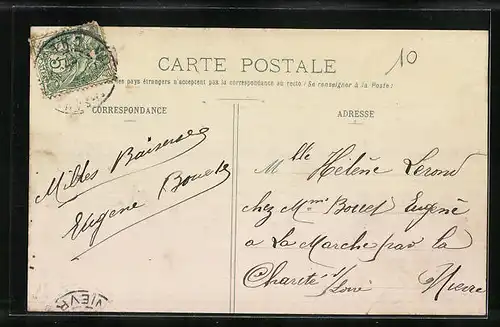 10
CARTE POSTALE
les pays étrangers n'acceptent pas la correspondance au recto (Se renseigner à la Poste)
CORRESPONDANCE
ADRESSE
Milles Baisers
Eugène Bouet
Mlle Hélène Lerond
chez Mme Bouet Eugène
a La Marche par la
Charité s/ Loire Nievre
5
NIEVR